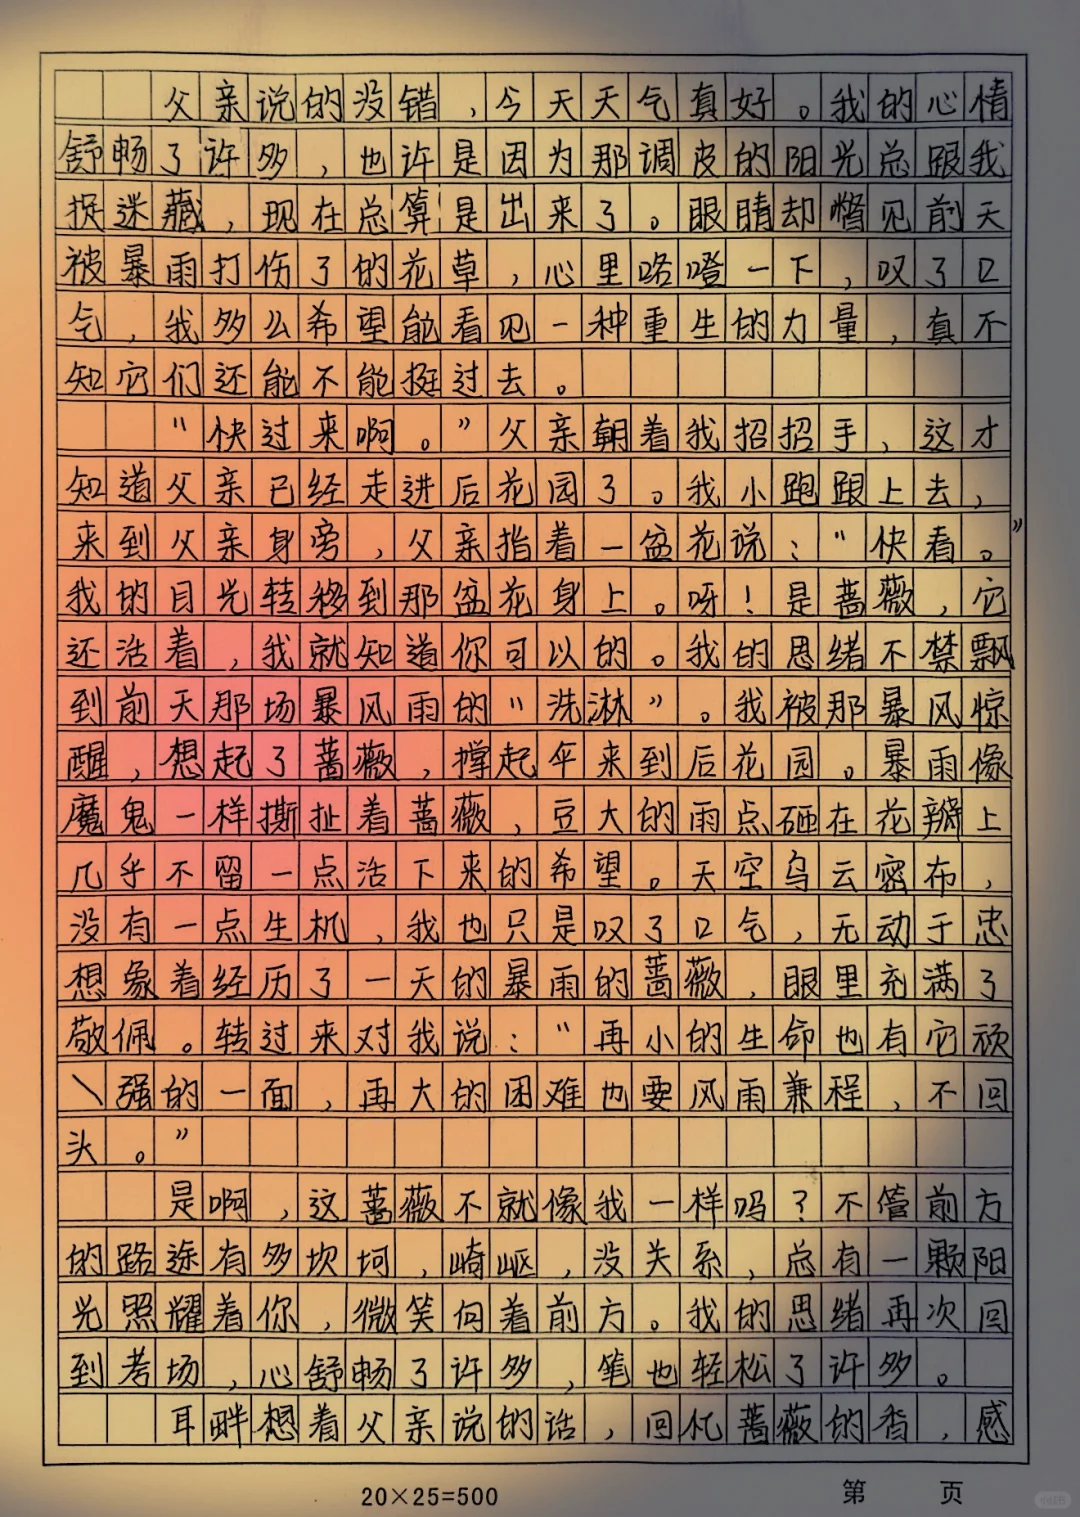 父亲说的没错，今天天气真好。我的心情
舒畅了许多，也许是因为那调皮的阳光总跟我
捉迷藏，现在总算是出来了。眼睛却瞥见前天
被暴雨打伤了的花草，心里咯噔一下，叹了口
气，我多么希望能看见一种重生的力量，真不
知它们还能不能挺过去。
“快过来啊。”父亲朝着我招招手，这才
知道父亲已经走进后花园了。我小跑跟上去，
来到父亲身旁，父亲指着一盆花说：“快看。”
我的目光转移到那盆花身上。呀！是蔷薇，它
还活着，我就知道你可以的。我的思绪不禁飘
到前天那场暴风雨的“洗淋”。我被那暴风惊
醒，想起了蔷薇，撑起伞来到后花园。暴雨像
魔鬼一样撕扯着蔷薇，豆大的雨点砸在花瓣上
几乎不留一点活下来的希望。天空乌云密布，
没有一点生机，我也只是叹了口气，无动于忠
想象着经历了一天的暴雨的蔷薇，眼里充满了
敬佩。转过来对我说：“再小的生命也有它顽
强的一面，再大的困难也要风雨兼程，不回
头。”
是啊，这蔷薇不就像我一样吗？不管前方
的路途有多坎坷，崎岖，没关系，总有一颗阳
光照耀着你，微笑向着前方。我的思绪再次回
到考场，心舒畅了许多，笔也轻松了许多。
耳畔想着父亲说的话，回忆蔷薇的香，感
20×25=500
第 页